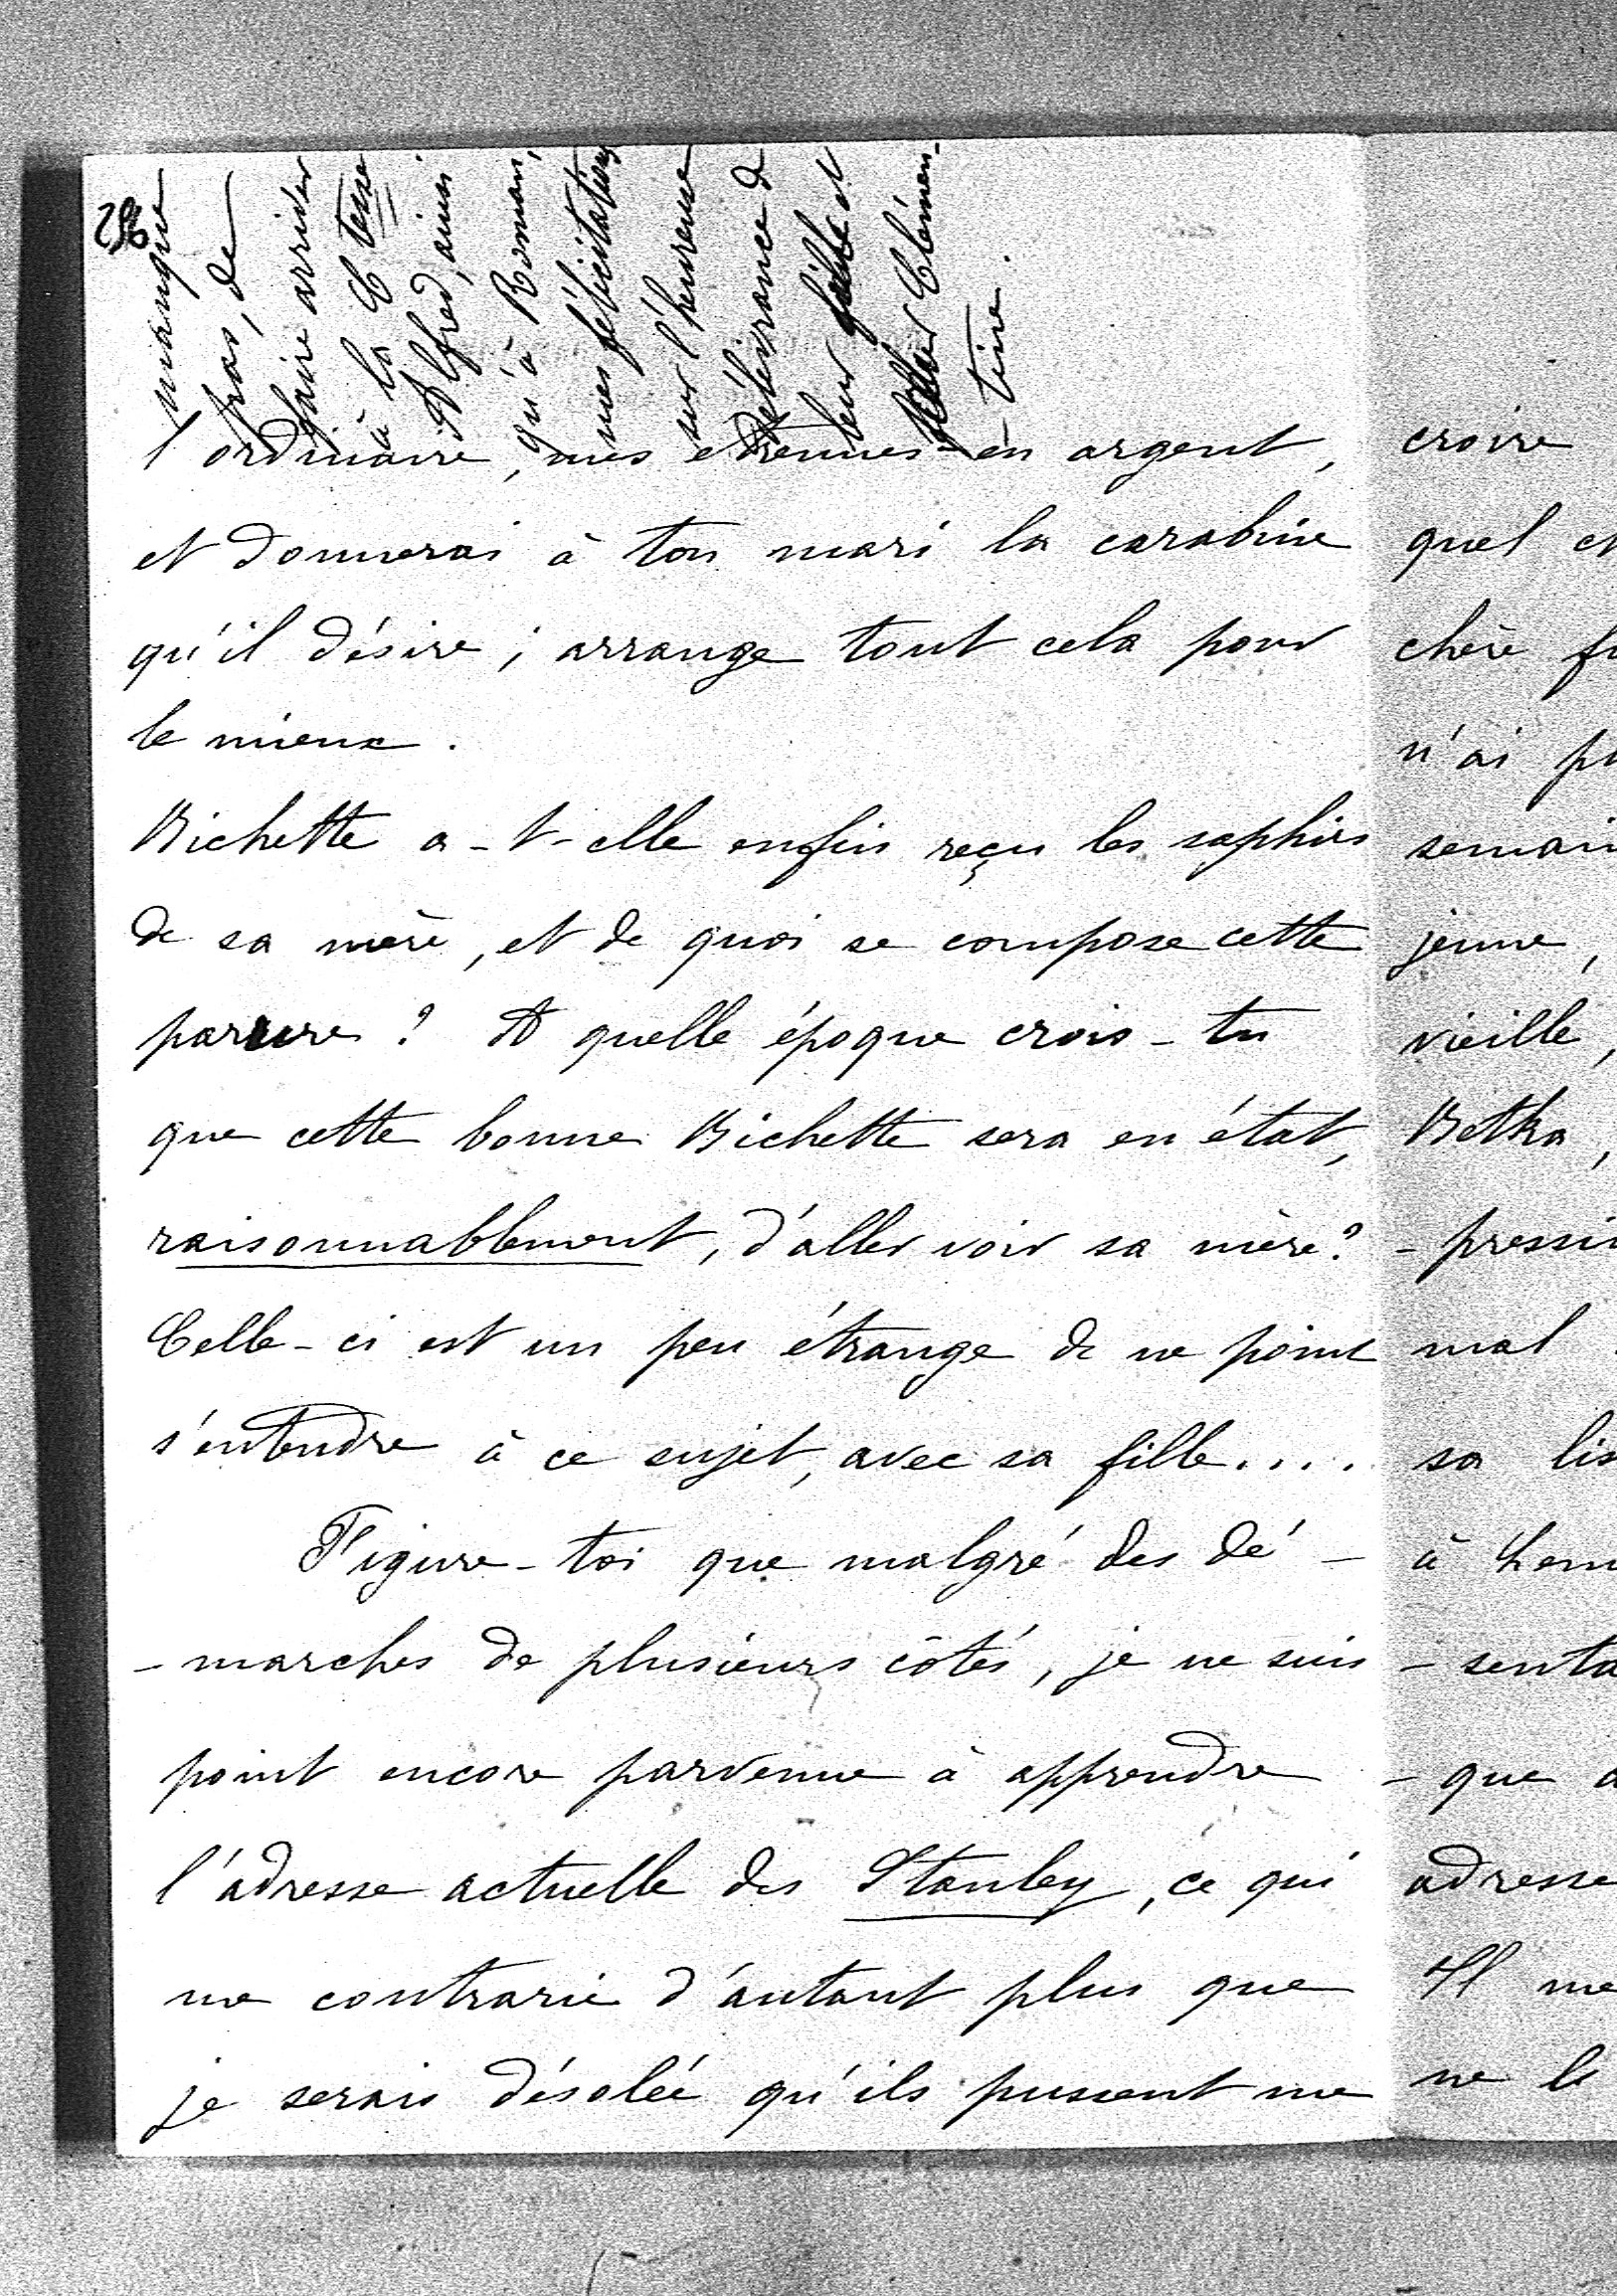 296
manque
pas, de
faire arriver
à la Ctesse
Alfred, ainsi
qu'à Roman,
mes félicitations
sur l'heureuse
délivrance de
leur fille et
sœur Clémen-
-tine.
l'ordinaire, mes étrennes en argent,
et donnerai à ton mari la carabine
qu'il désire ; arrange tout cela pour
le mieux.
Bichette a-t-elle enfin reçu les saphirs
de sa mère, et de quoi se compose cette
parure ? A quelle époque crois-tu
que cette bonne Bichette sera en état,
raisonnablement, d'aller voir sa mère ?
Celle-ci est un peu étrange de ne point
s'entendre à ce sujet, avec sa fille....
Figure-toi que malgré des dé-
-marches de plusieurs côtés, je ne suis
point encore parvenue à apprendre
l'adresse actuelle des Stanley, ce qui
me contrarie d'autant plus que
je serais désolée qu'ils pussent me
croire
quel
chère
n'ai
jeune,
vieille,
Betka,
mal
sa
à
- que
adresse
Il me
ne le